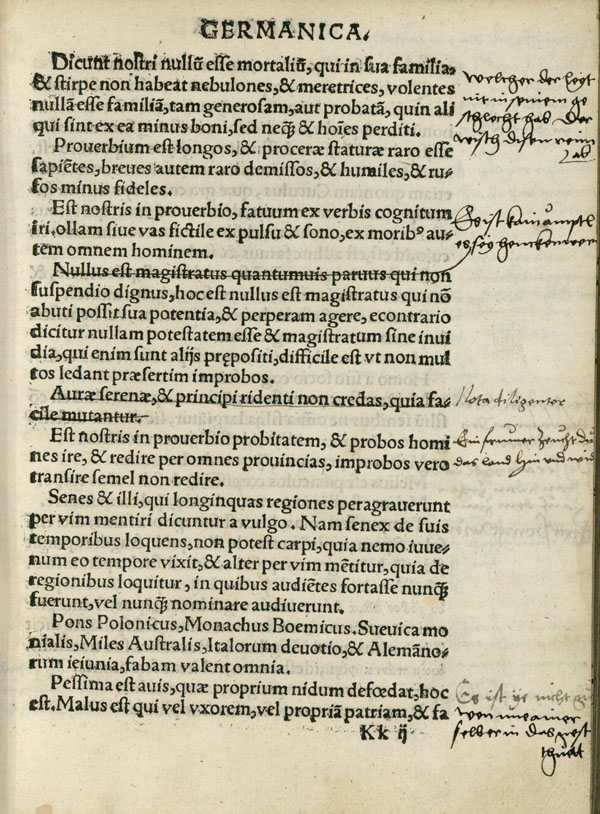 GERMANICA.
Dicunt nostri nullũ esse mortaliũ, qui in sua familia,
& stirpe non habeat nebulones, & meretrices, volentes
nullã esse familiã, tam generosam, aut probatã, quin ali
qui sint ex ea minus boni, sed neqȝ & hoĩes perditi.
Prouerbium est longos, & proceræ staturæ raro esse
sapiẽtes, breues autem raro demissos, & humiles, & ru-
fos minus fideles.
Est nostris in prouerbio, fatuum ex verbis cognitum
iri, ollam siue vas fictile ex pulsu & sono, ex moribꝰ au-
tem omnem hominem.
Nullus est magistratus quantumuis paruus qui non
suspendio dignus, hoc est nullus est magistratus qui nõ
abuti possit sua potentia, & perperam agere, econtrario
dicitur nullam potestatem esse & magistratum sine inui
dia, qui enim sunt alijs prępositi, difficile est vt non mul
tos ledant præsertim improbos.
Auræ serenæ, & principi ridenti non credas, quia fa-
cile mutantur.
Nota diligenter
Est nostris in prouerbio probitatem, & probos homi
nes ire, & redire per omnes prouincias, improbos vero
transire semel non redire.
das land hin und wid
Senes & illi, qui longinquas regiones peragrauerunt
per vim mentiri dicuntur a vulgo. Nam senex de suis
temporibus loquens, non potest carpi, quia nemo iuue-
num eo tempore vixit, & alter per vim mẽtitur, quia de
regionibus loquitur, in quibus audiẽtes fortasse nunqȝ
fuerunt, vel nunqȝ nominare audiuerunt.
Pons Polonicus, Monachus Boemicus. Sueuica mo
nialis, Miles Australis, Italorum deuotio, & Alemãno-
rum ieiunia, fabam valent omnia.
Pessima est auis, quæ proprium nidum defœdat, hoc
est. Malus est qui vel vxorem, vel propriã patriam, & fa
Es ist
selber in das nest
Kk ij